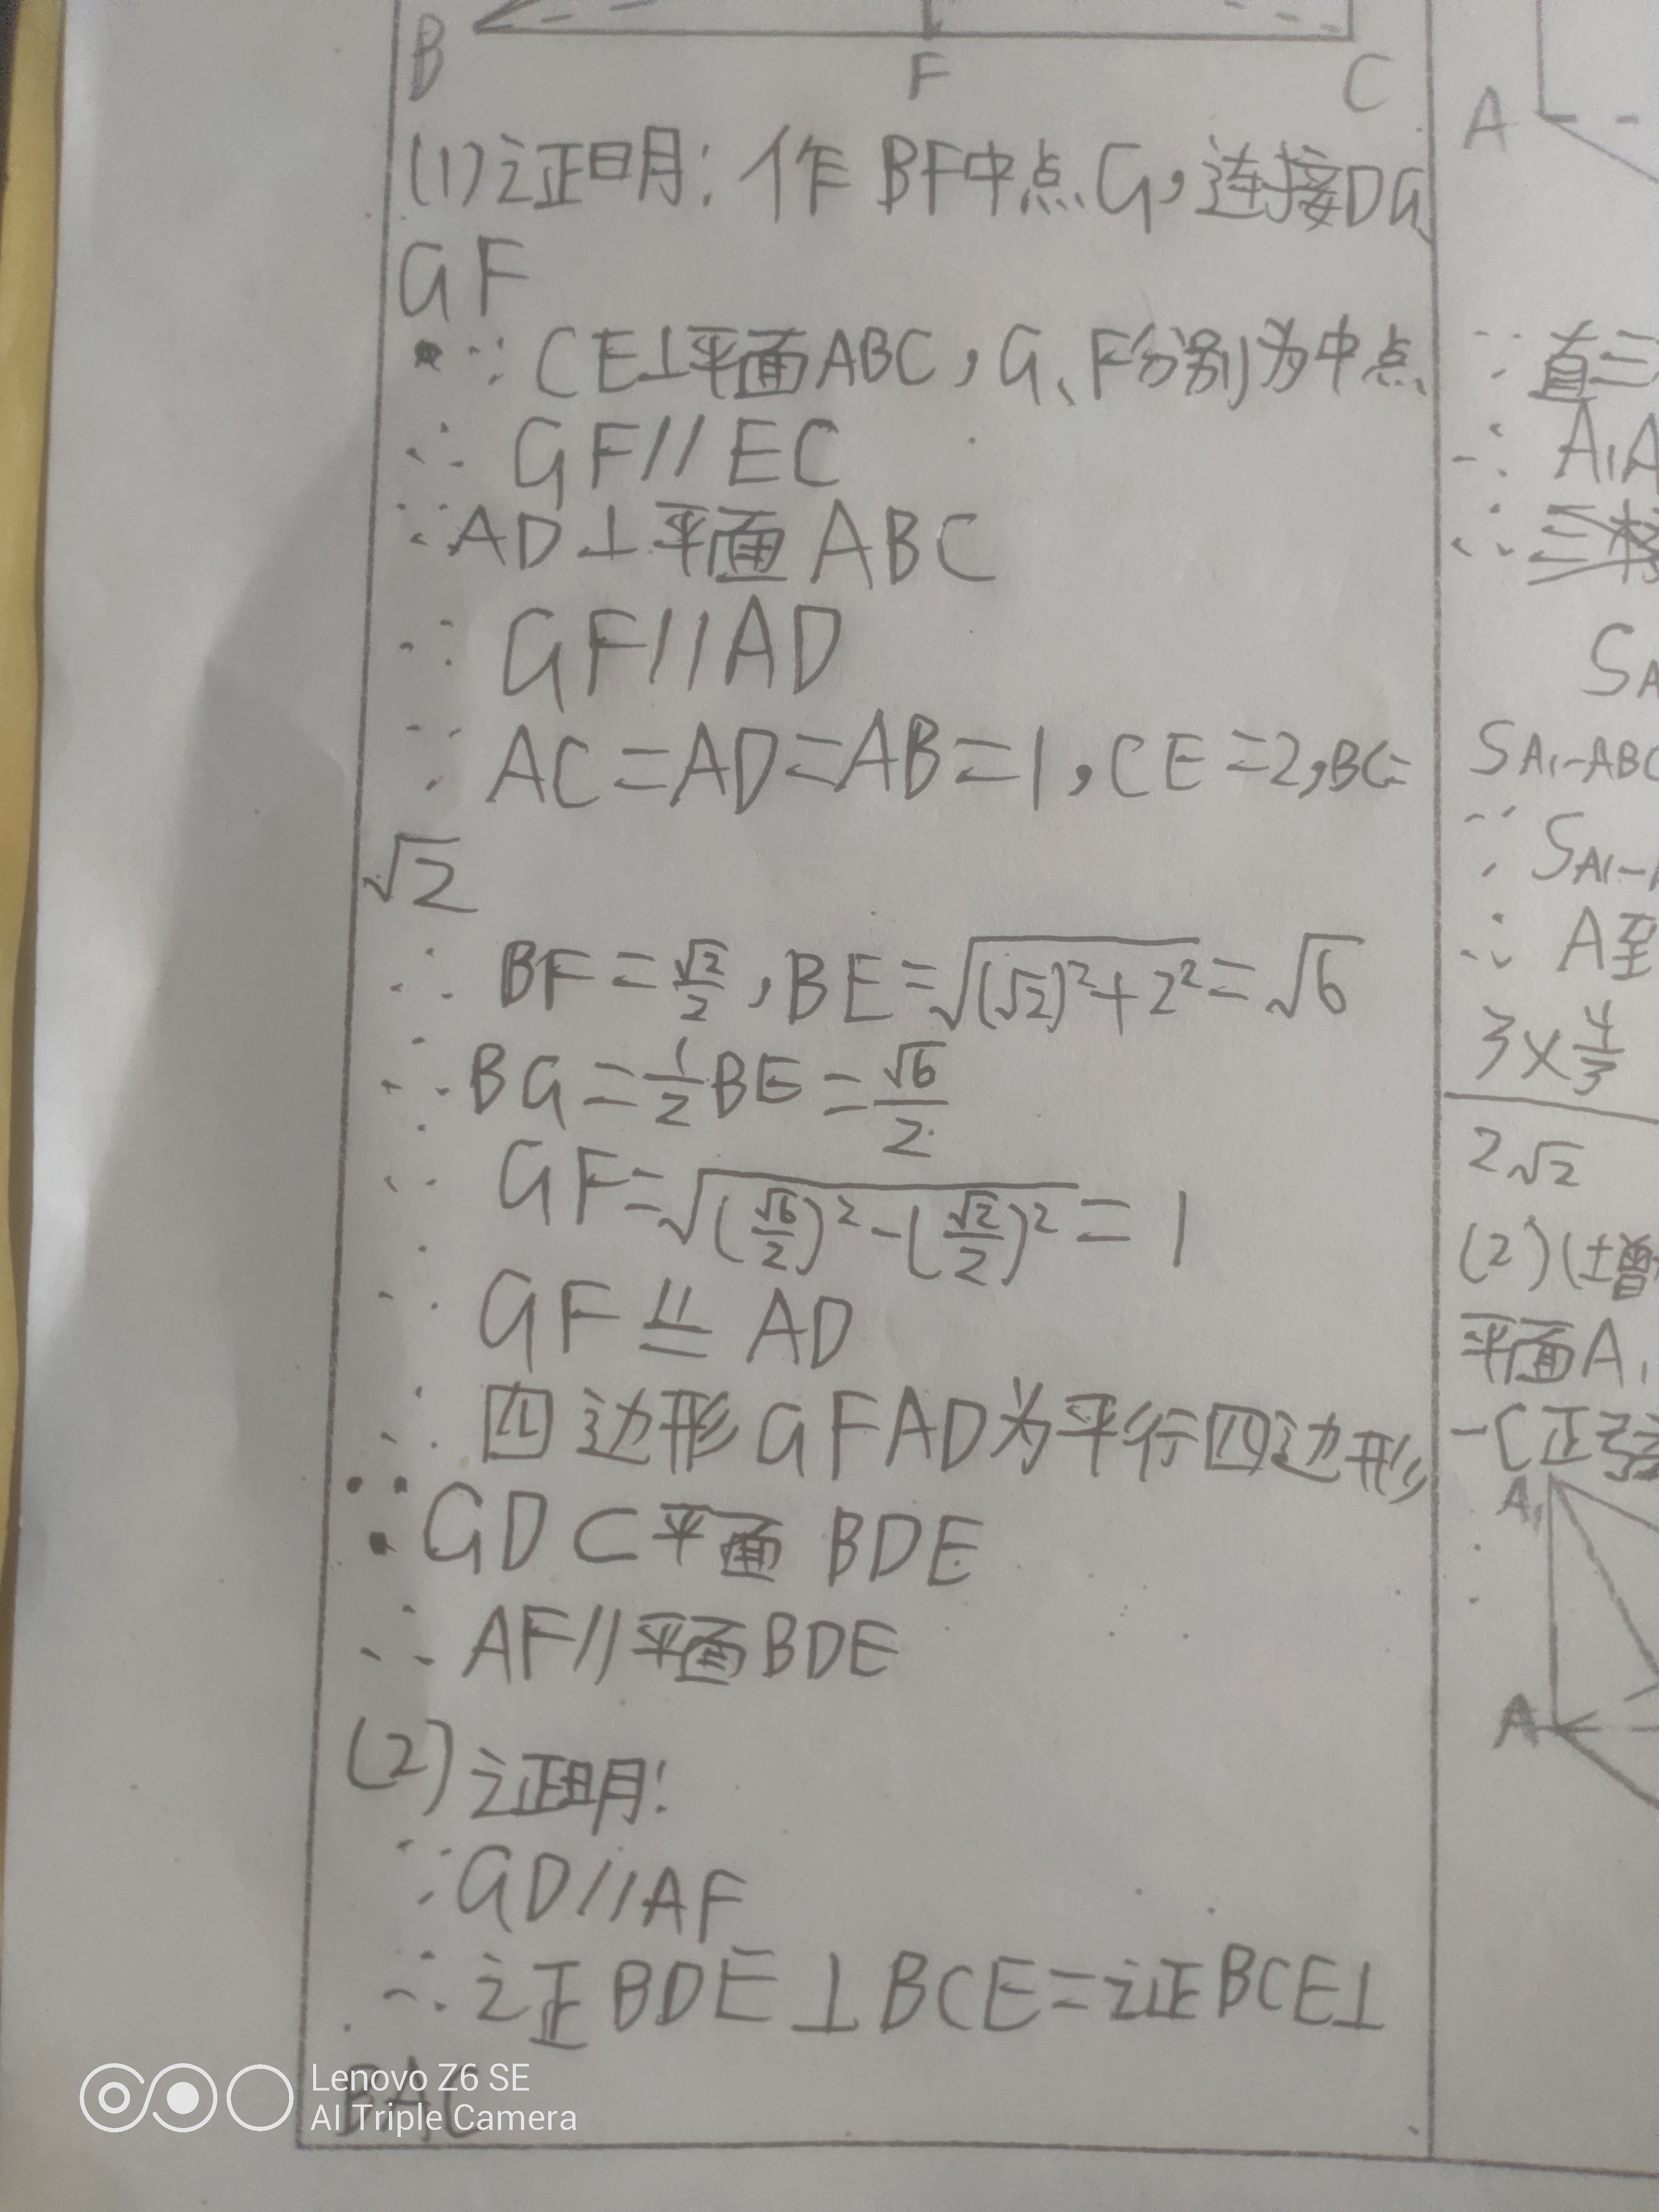 B
F
C
(1)证明:作BF中点G,连接DG、
GF
∵CE⊥平面ABC,G、F分别为中点
∴GF//EC
∵AD⊥平面ABC
∴GF//AD
∵AC=AD=AB=1,CE=2,BC=
√2
∴BF=√2/2,BE=√((√2)²+2²)=√6
∴BG=1/2BE=√6/2
∴GF=√((√6/2)²-(√2/2)²)=1
∴GF⫽=AD
∴四边形GFAD为平行四边形
∵GD⊂平面BDE
∴AF//平面BDE
(2)证明:
∵GD//AF
∴证BDE⊥BCE=证BCE⊥
BAC
A
∵直三
∴A₁A
∴三棱
S
S A₁-ABC
∵S A₁-
∴A至
3×4/3
2√2
(2)(增
平面A₁
-C正弦
A₁
A
Lenovo Z6 SE
AI Triple Camera